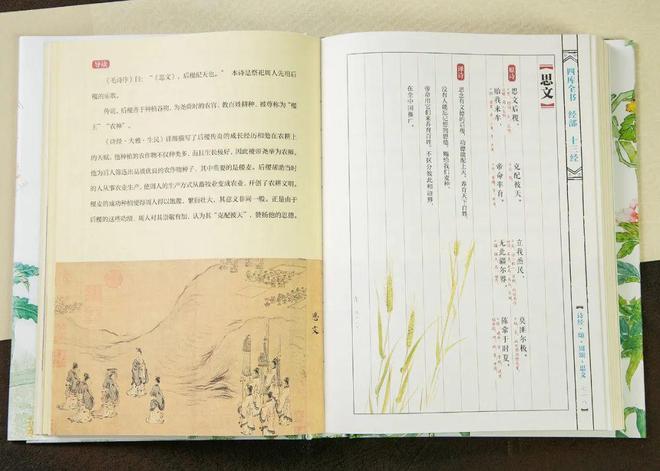 导读
《毛诗序》曰:“《思文》,后稷配天也。” 本诗是祭祀周人先祖后
稷的乐歌。
传说,后稷善于种植谷物,为尧舜时的农官,教百姓耕种,被尊称为“稷
王”“农神”。
《诗经·大雅·生民》详细描写了后稷传奇的成长经历和他在农耕上
的天赋,他种植的农作物不仅种类多,而且生长极好,因此被尧举为农师,
他为后人筛选出品质优良的农作物种子,其中重要的是稷麦。后稷帮助当时
的人从事农业生产,使周人的生产方式从畜牧业变成农业,开创了农耕文明。
稷麦的成功种植使得周人得以饱腹,繁衍壮大,其意义非同一般。正是由于
后稷的这些功绩,周人对其崇敬有加,认为其“克配彼天”,赞扬他的恩德。
思文
四库全书 经部 十三经
诗经·颂·周颂·思文
【思文】
原诗
思文后稷,克配彼天。立我烝民,莫匪尔极。
贻我来牟,帝命率育。无此疆尔界,陈常于时夏。
译诗
思念有文德的后稷,功德能配上天。养育天下百姓,
没有人能忘记您的恩德。赐给我们麦种,
帝命用它们来养育百姓。不区分彼此和边界,
在全中国推广。